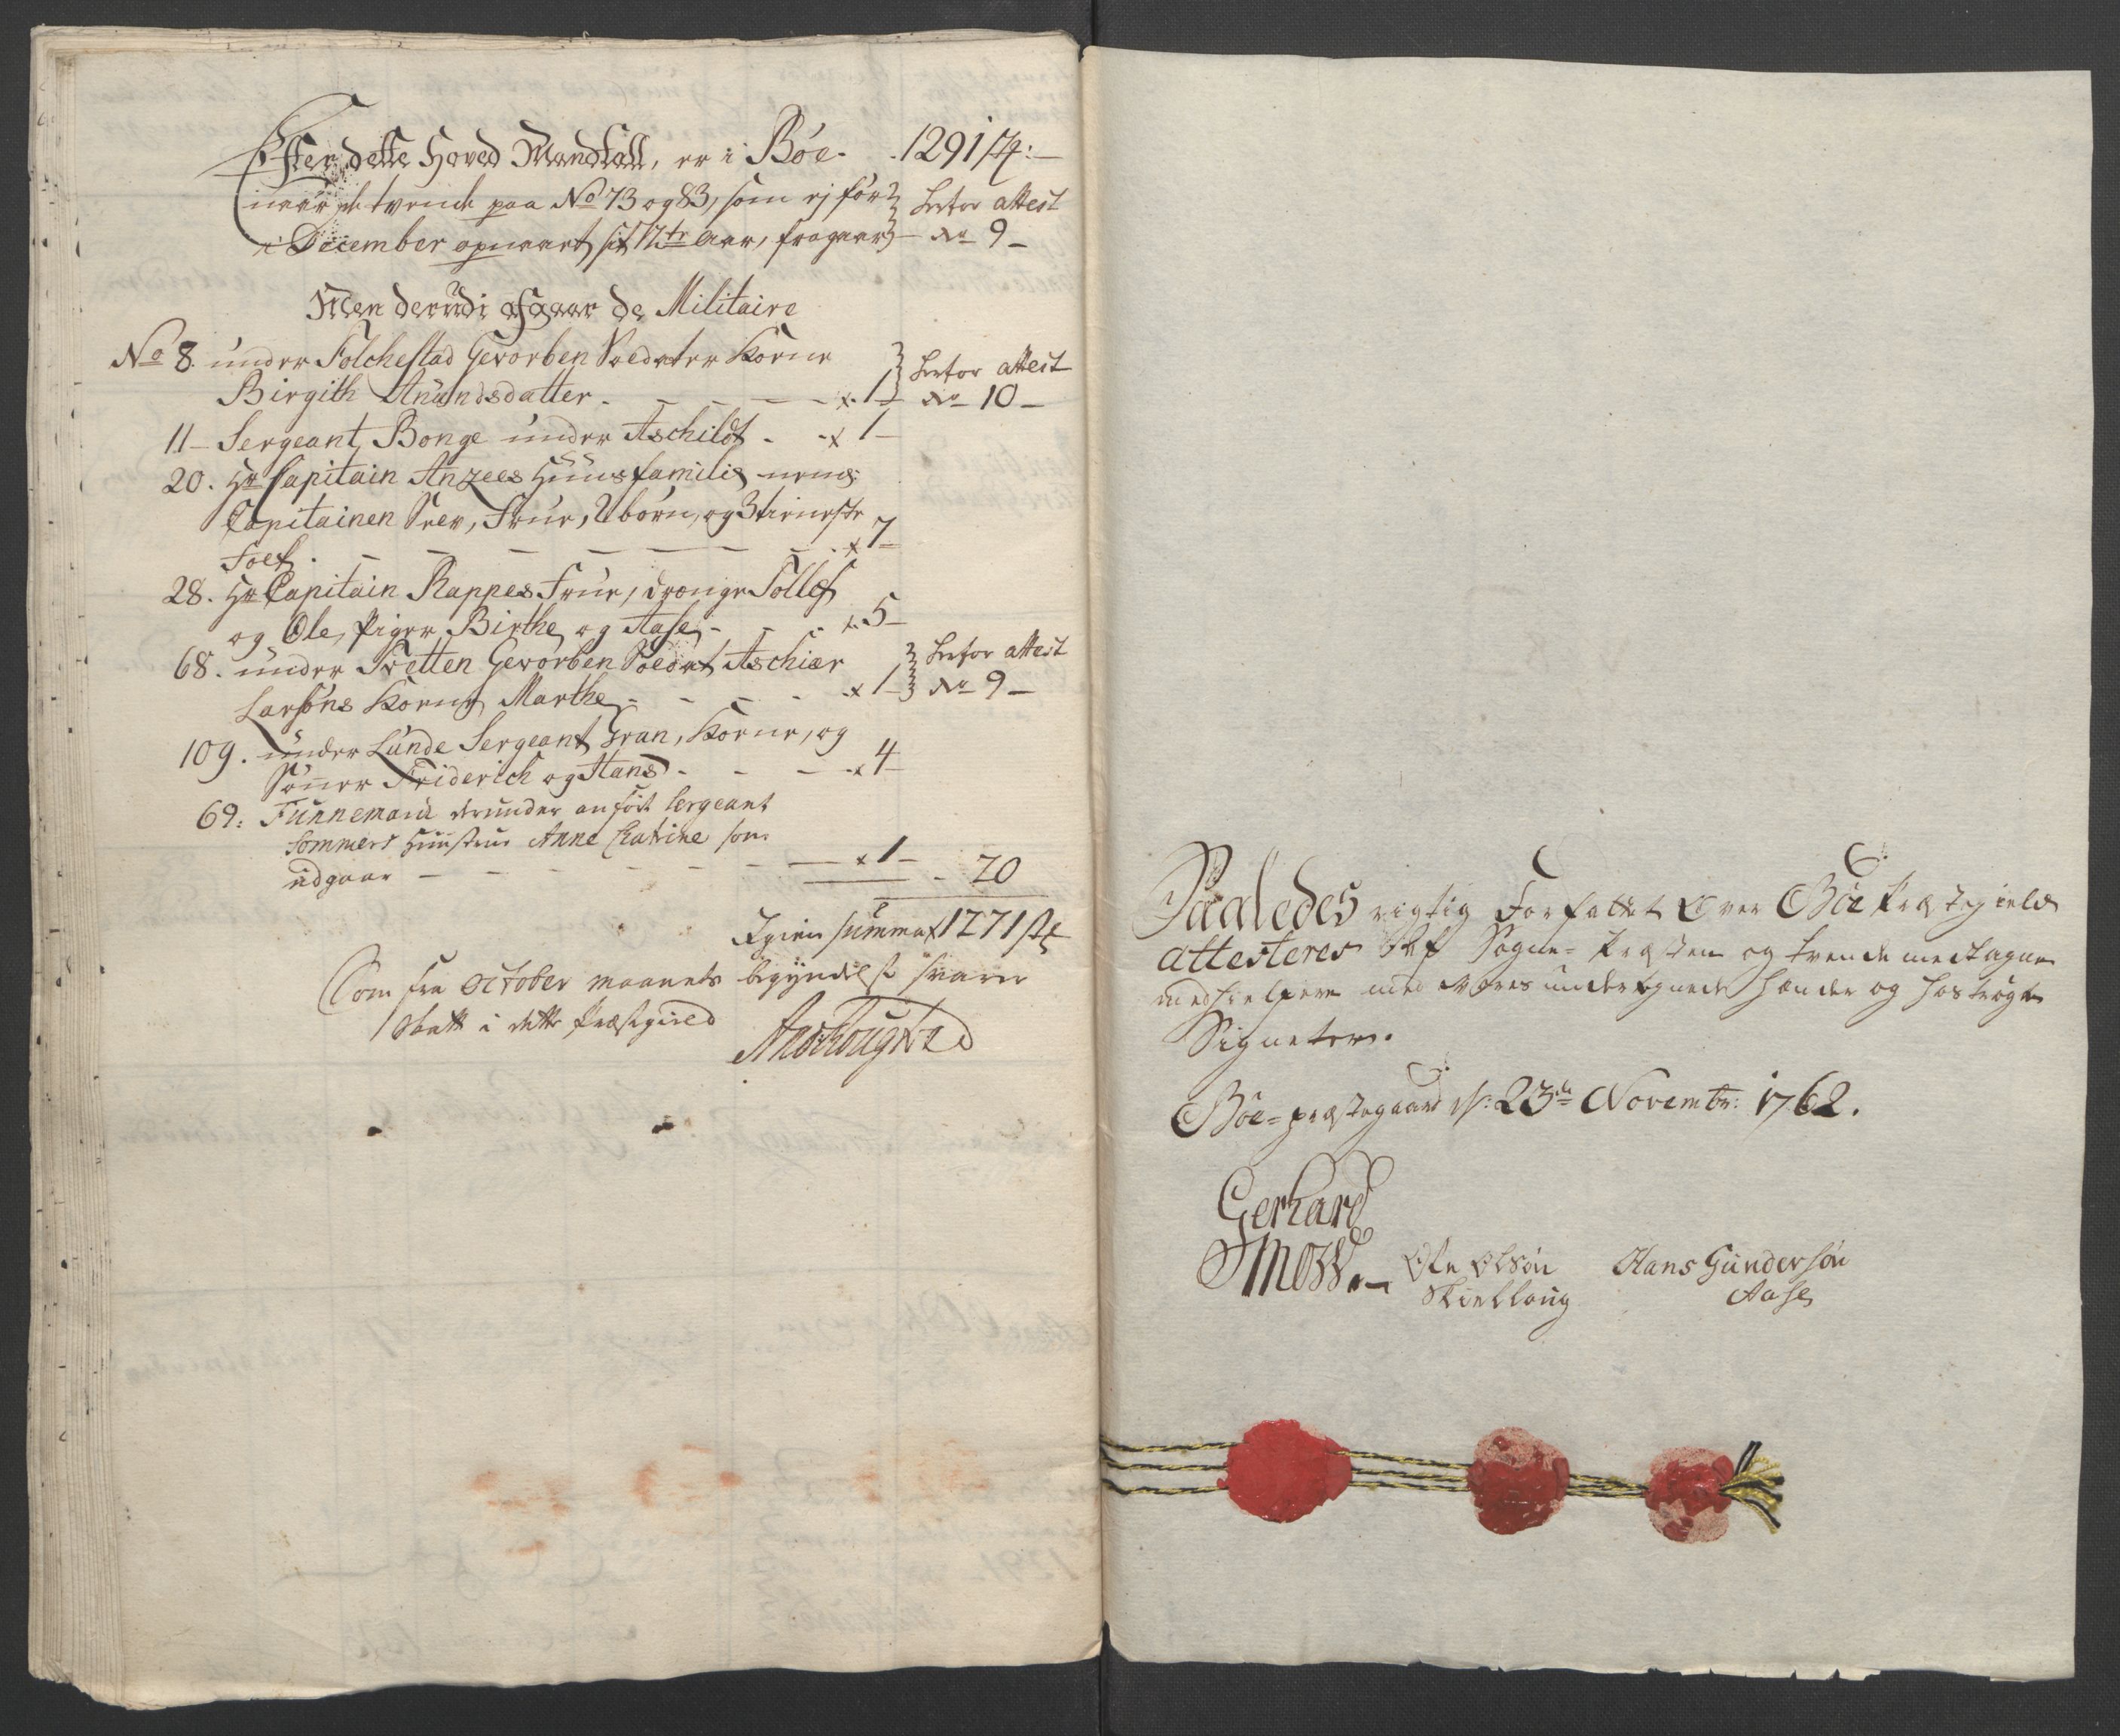 Efter dette Hoved Mandtall, er i Bøe - 1291 st:
naar de tvende paa No 73 og 83, som ej før
i December opnaaet sit 12te Aar, fragaar
attest
No 9
Men derudi afgaar de Militaire
No 8. under Folchestad Gevorben Soldaters Kone
Birgith Anundsdatter - x 1
attest
No 10
11 Sergeant Bonge under Aschildt - x 1
20. Hr Capitain Anzees Huusfamilie nemb:
Capitainen Selv, Frue, 2 børn, og 3 tieneste
Folk - x 7
28. Hr Capitain Rappes Frue, drenge Tollef
og Ole, Piger Birthe og Aase - x 5
68. under Tvetten Gevorben Soldat Aschier
Larsøns Kone Marthe - x 1
attest
No 9
109. under Lunde Sergeant Gran, Kone, og
Sønner Friderich og Hans - x 4
69: Funnemarck derunder anført Sergeant
Sommers Huustrue Anne Catrine som
udgaar - x 1 - 20
Igien Summa x 1271 st
Som fra October maanets begyndelse svarer
Skatt i dette Præstegield
Saaledes rigtig Forfattet Over Bøe Præstegield
attesteres Af Sogne-Præsten og tvende medtagne
medhielpere med vores undertegnede Hænder og hostrøgte
Signeter.
Bøe-præstegaard d: 23de Novembr: 1762.
Gerhard
Moss
Ole Olsøn
Hans Gundersøn
Skiellaug
Aase